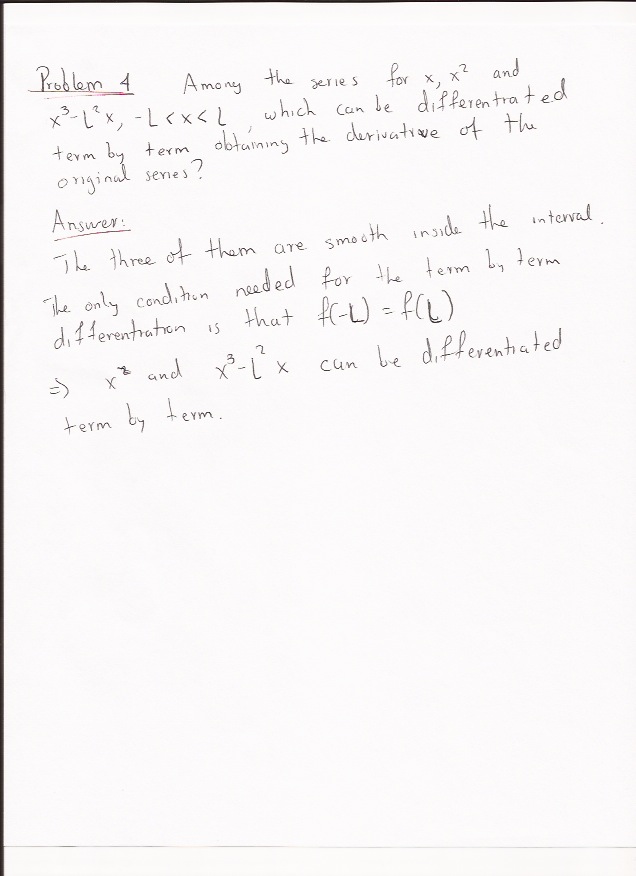 Problem 4 Among the series for x, x² and
x³-L²x, -L<x<L, which can be differentiated
term by term obtaining the derivative of the
original series?
Answer:
The three of them are smooth inside the interval.
The only condition needed for the term by term
differentiation is that f(-L) = f(L)
⇒ x² and x³-L²x can be differentiated
term by term.